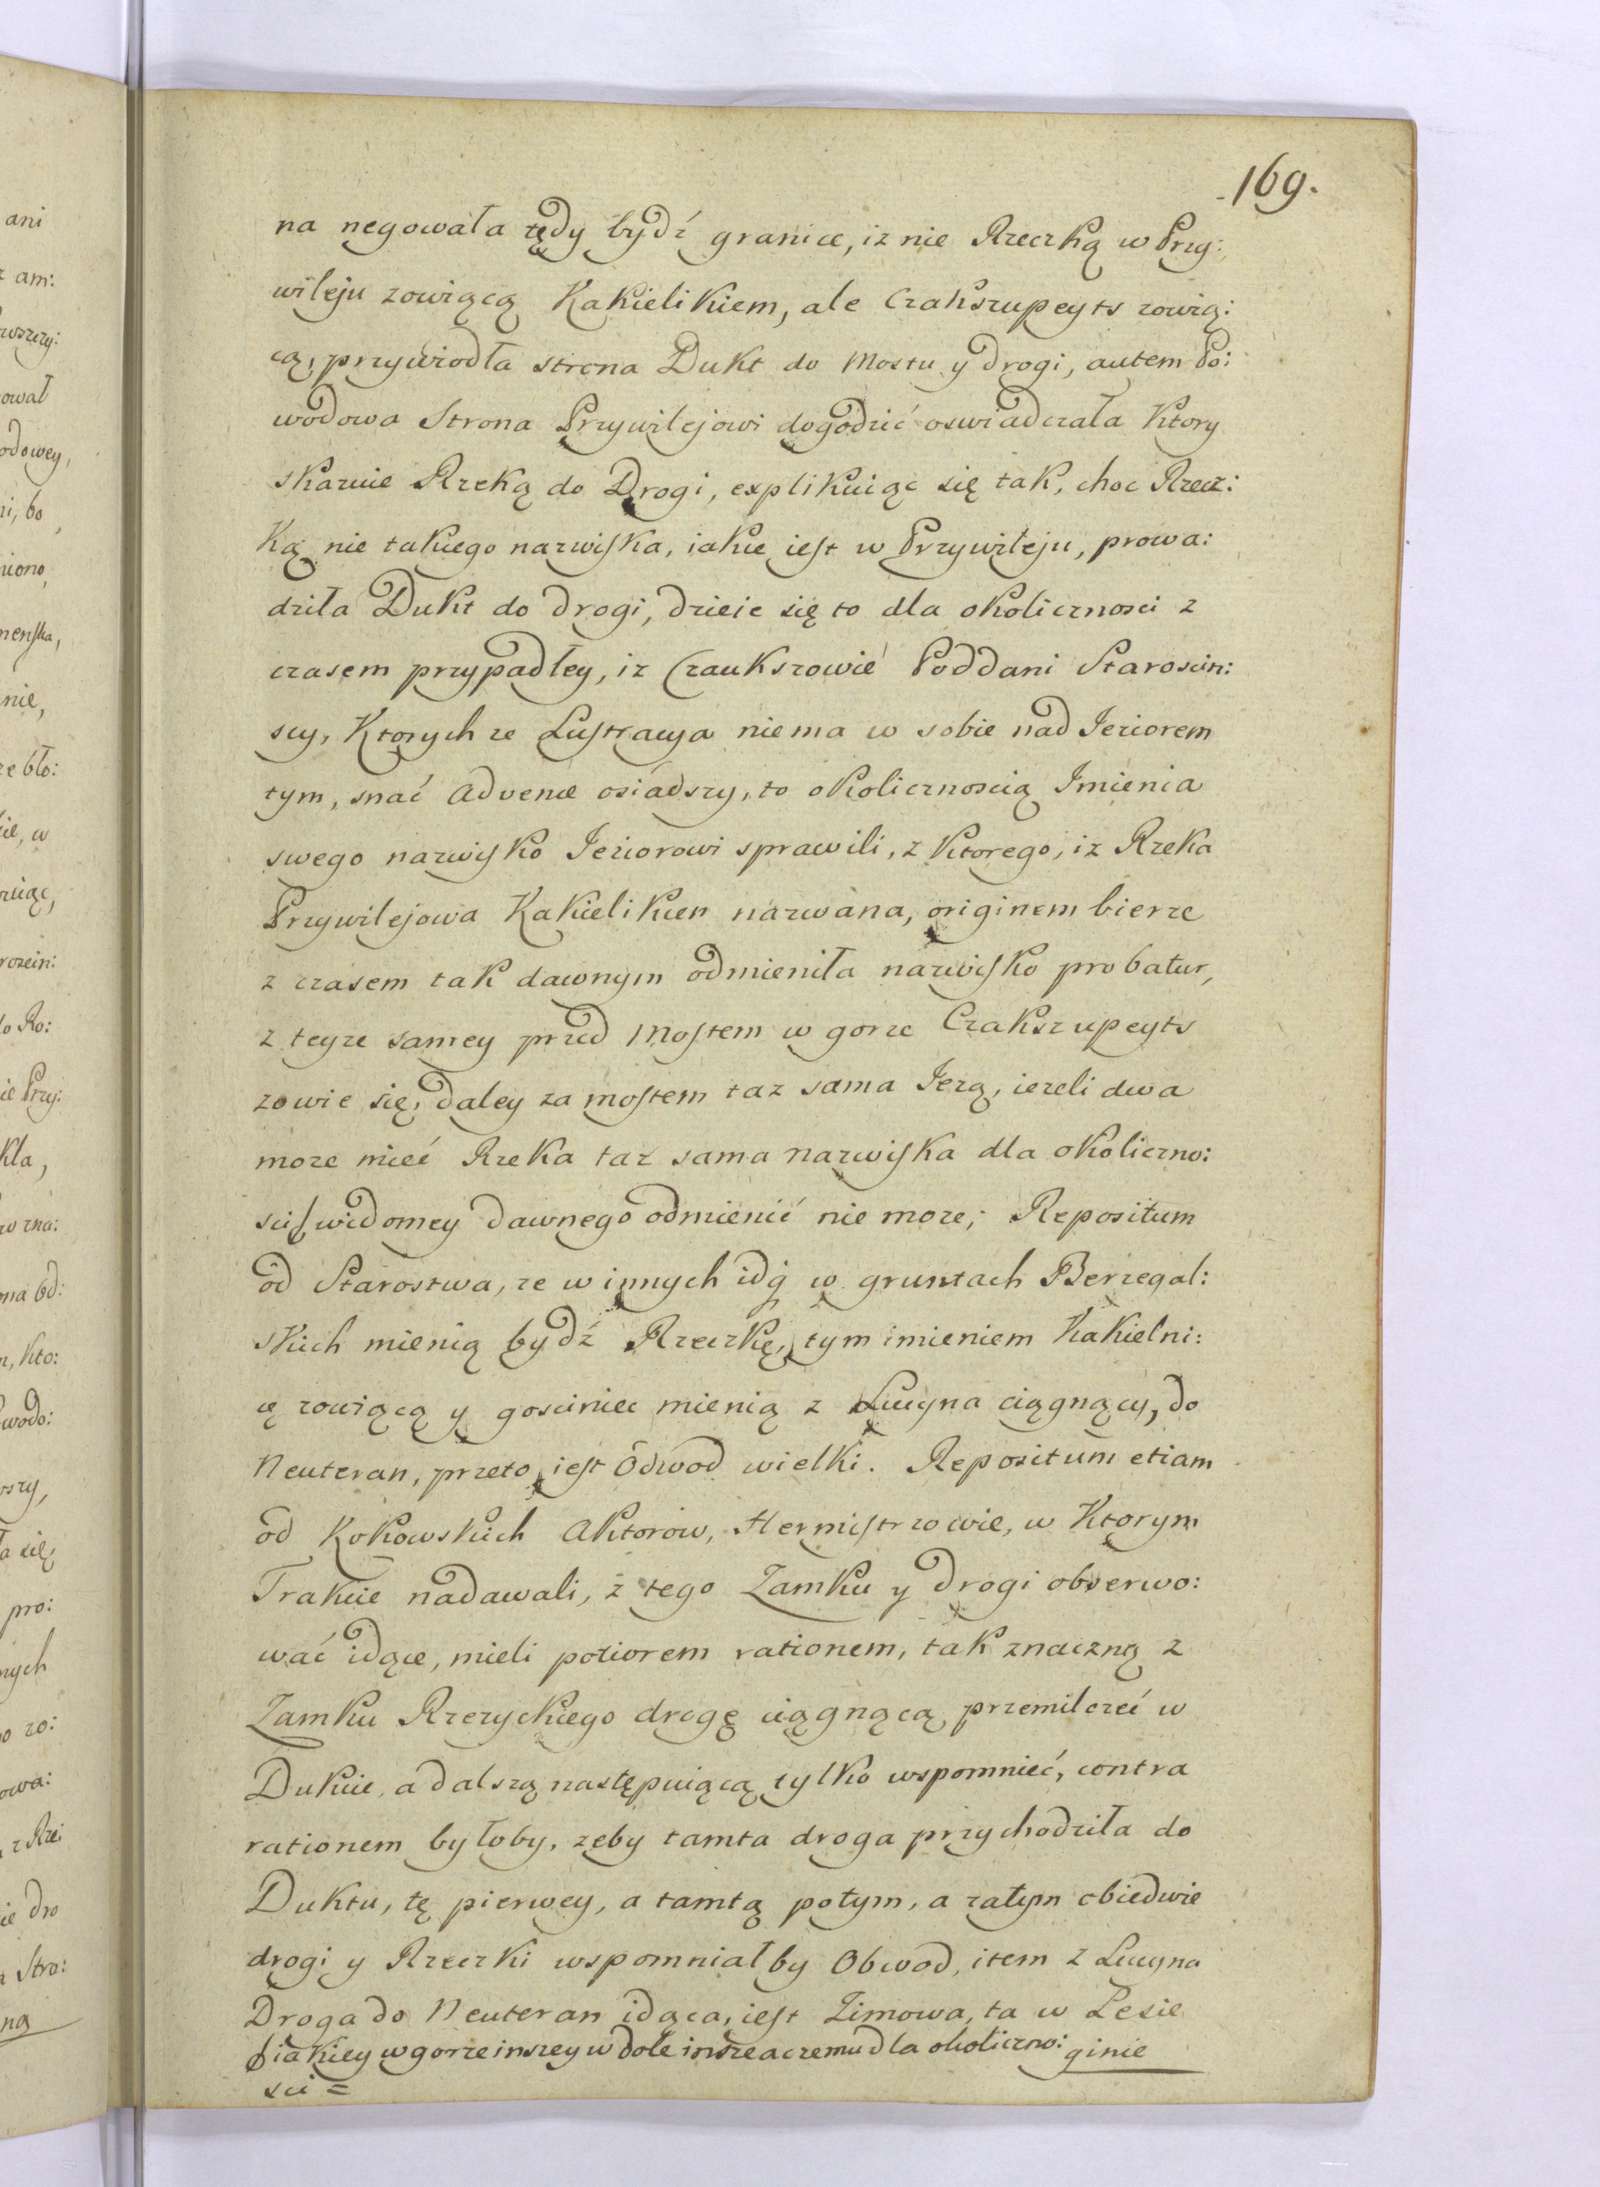 169.
na negowała tędy bydź granice, iz nie Rzeczką w Przy:
wileju zowiącą Kakielikiem, ale Czakszupeyts zowią:
cą, przywiodła strona Dukt do Mostu y drogi, autem Po:
wodowa Strona Przywilejowi dogodzić oswiadczała Ktory
skazuie Rzeką do Drogi, explikuiąc się tak, choc Rzecz:
Ką nie takiego nazwiska, iakie iest w Przywileju, prowa:
dziła Dukt do drogi, dzieie się to dla okolicznosci z
czasem przypadłey, iz Czaukszowie Poddani Staroscin:
scy, Ktorych ze Lustracya niema w sobie nad Ieziorem
tym, snać Advenæ osiadszy, to okolicznoscią Imienia
swego nazwisko Ieziorowi sprawili, z Ktorego, iz Rzeka
Przywilejowa Kakielikien nazwana, originem bierze
z czasem tak dawnym odmieniła nazwisko probatur,
z teyze samey przed Mostem w gorze Czakszupeyts
zowie się, daley za mostem taz sama Iezą, iezeli dwa
moze mieć Rzeka taz sama nazwiska dla okoliczno:
sci widomey dawnego odmienić nie moze; Repositum
od Starostwa, ze w innych idą w gruntach Berzegal:
skich mienią bydź Rzeczkę, tym imieniem Kakielni:
cę zowiącą y gosciniec mienią z Lucyna ciągnący, do
Neuteran, przeto iest Odwod wielki. Repositum etiam
od Kokowskich Aktorow, Hermistrzowie, w Ktorym
Trakcie nadawali, z tego Zamku y drogi obserwo:
wać idące, mieli potiorem rationem, tak znaczną z
Zamku Rzezyckiego drogę ciągnącą przemilczeć w
Dukcie, a dalszą następuiącą tylko wspomnieć, contra
rationem byłoby, zeby tamta droga przychodziła do
Duktu, tę pierwey, a tamtą potym, a zatym obiedwie
drogi y Rzeczki wspomniałby Obwod, item z Lucyna
Droga do Neuteran idąca, iest Zimowa, ta w Lesie
iakiey w gorze inszey w dole insze a czemu dla okoliczno: ginie
sci =
ani
am:
ował
odowey,
bo
niono,
nie,
w
Ro:
Przy:
kla,
kto:
wodo:
się,
pro:
nych
zo:
owa:
dro
Stro:
ną